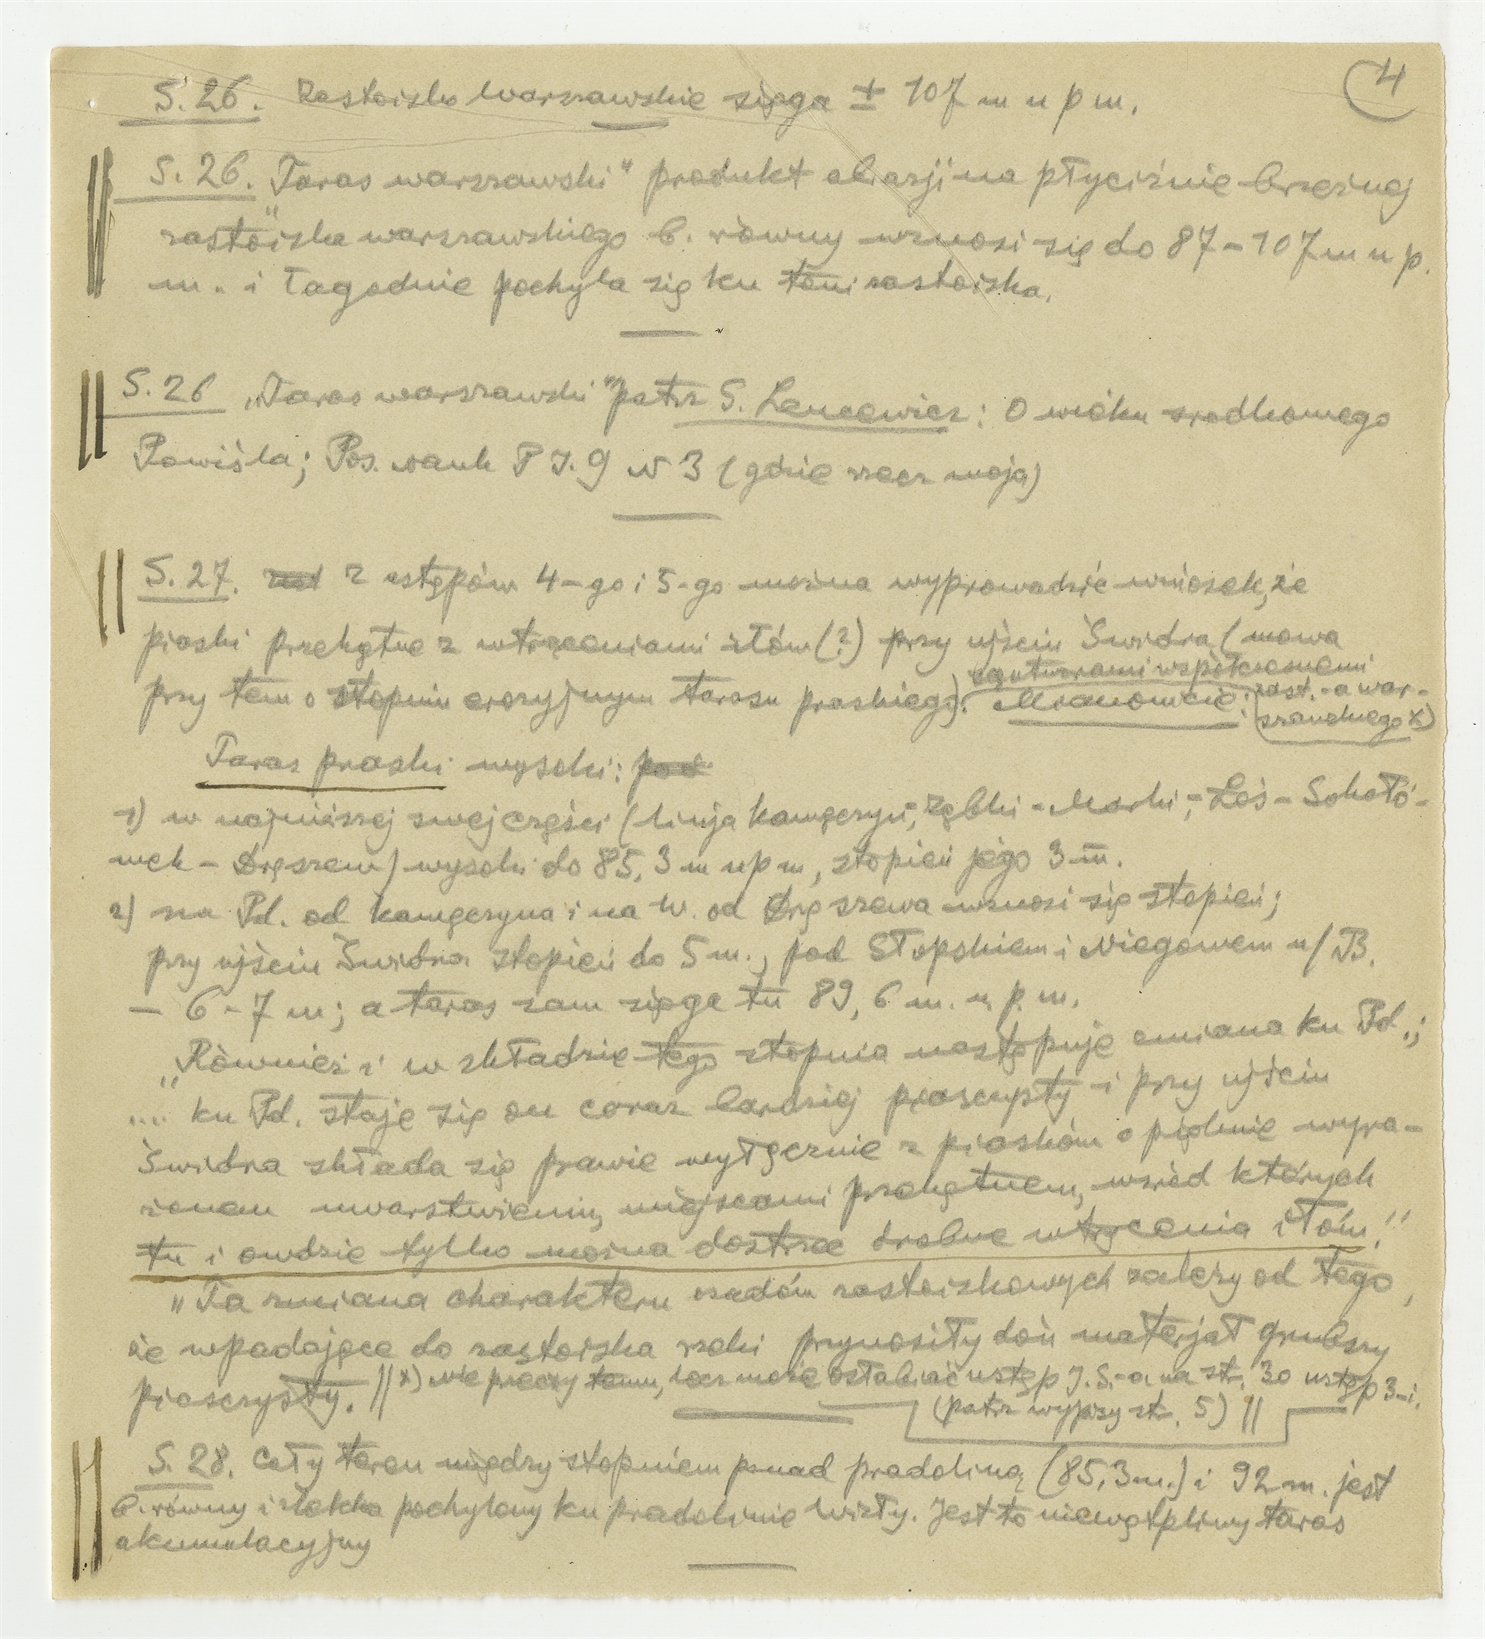 4
S. 26. Zastoisko Warszawskie sięga ± 107 m n p m.
S. 26. „Taras warszawski" produkt abrazji na płyciźnie brzeżnej
zastoiska warszawskiego b. równy wznosi się do 87 – 107 m n p.
m. i łagodnie pochyla się ku toni zastoiska.
S. 26 „Taras warszawski" patrz S. Lencewicz: O wieku środkowego
Powiśla; Pos. nauk P I. G N 3 (gdzie rzecz moja)
S. 27. Z ustępów 4-go i 5-go można wyprowadzić wniosek, że
piaski przekątne z wtrąceniami iłów (?) przy ujściu Świdra (mowa
są utworami współczesnemi
przy tem o stopniu erozyjnym tarasu praskiego). Mianowicie: zast.-a war-
szawskiego x)
Taras praski wysoki:
1) w najniższej swej części (linja Kawęczyn, Ząbki – Marki; – Łoś – Sokołó-
wek – Dręszew) wysoki do 85,3 m npm, stopień jego 3 m.
2) na Pd. od Kawęczyna i na W. od Dręszewa wznosi się stopień;
przy ujściu Świdra stopień do 5 m., pod Słopskiem i Niegowem n/B.
– 6 – 7 m; a taras sam sięga tu 89,6 m. n. p. m.
„Również i w składzie tego stopnia następuje zmiana ku Pd.;
.... ku Pd. staje się on coraz bardziej piaszczysty i przy ujściu
Świdra składa się prawie wyłącznie z piasków o pięknie wyra-
żonem uwarstwieniu, miejscami przekątnem, wśród których
tu i owdzie tylko można dostrzec drobne wtrącenia iłów."
„Ta zmiana charakteru osadów zastoiskowych zależy od tego,
że wpadające do zastoiska rzeki przynosiły doń materjał grubszy
piaszczysty. || x) nie przeczy temu, lecz może osłabiać ustęp J. S.-a na st. 30 ustęp 3-i.
(patrz wypisy st. 5) ||
S. 28. Cały teren między stopniem ponad pradoliną (85,3 m.) i 92 m. jest
b. równy i lekko pochylony ku pradolinie Wisły. Jest to niewątpliwy taras
akumulacyjny